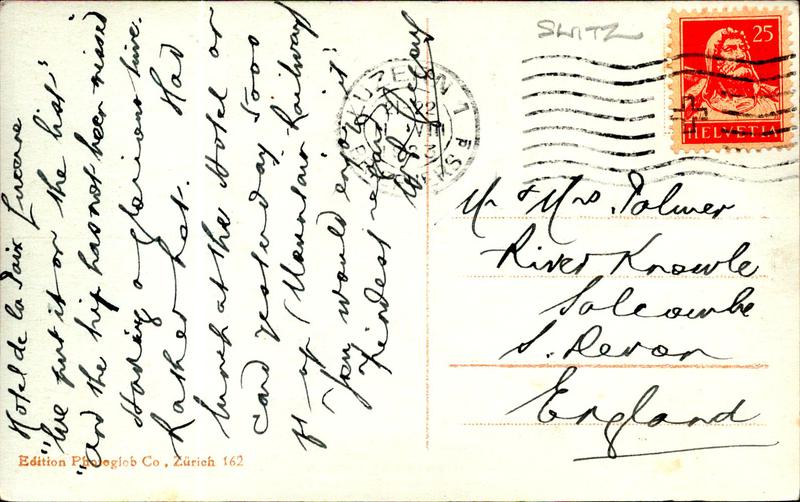 Hotel de la Paix Lucerne
"We put it on the list"
"and the hip has not been missed"
Having a glorious time.
Rather hot. Had
lunch at the Hotel on
card yesterday 5000
ft up (Mountain Railway)
You would enjoy it!
Kindest regards
SWITZ
25
HELVETIA
LUZERN 1
Mr & Mrs. Palmer
River Knowle
Salcombe
S. Devon
England
Edition Photoglob Co., Zürich 162